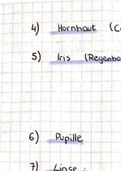 4) Hornhaut (C
5) Iris (Regenbo
6) Pupille
7) Linse :